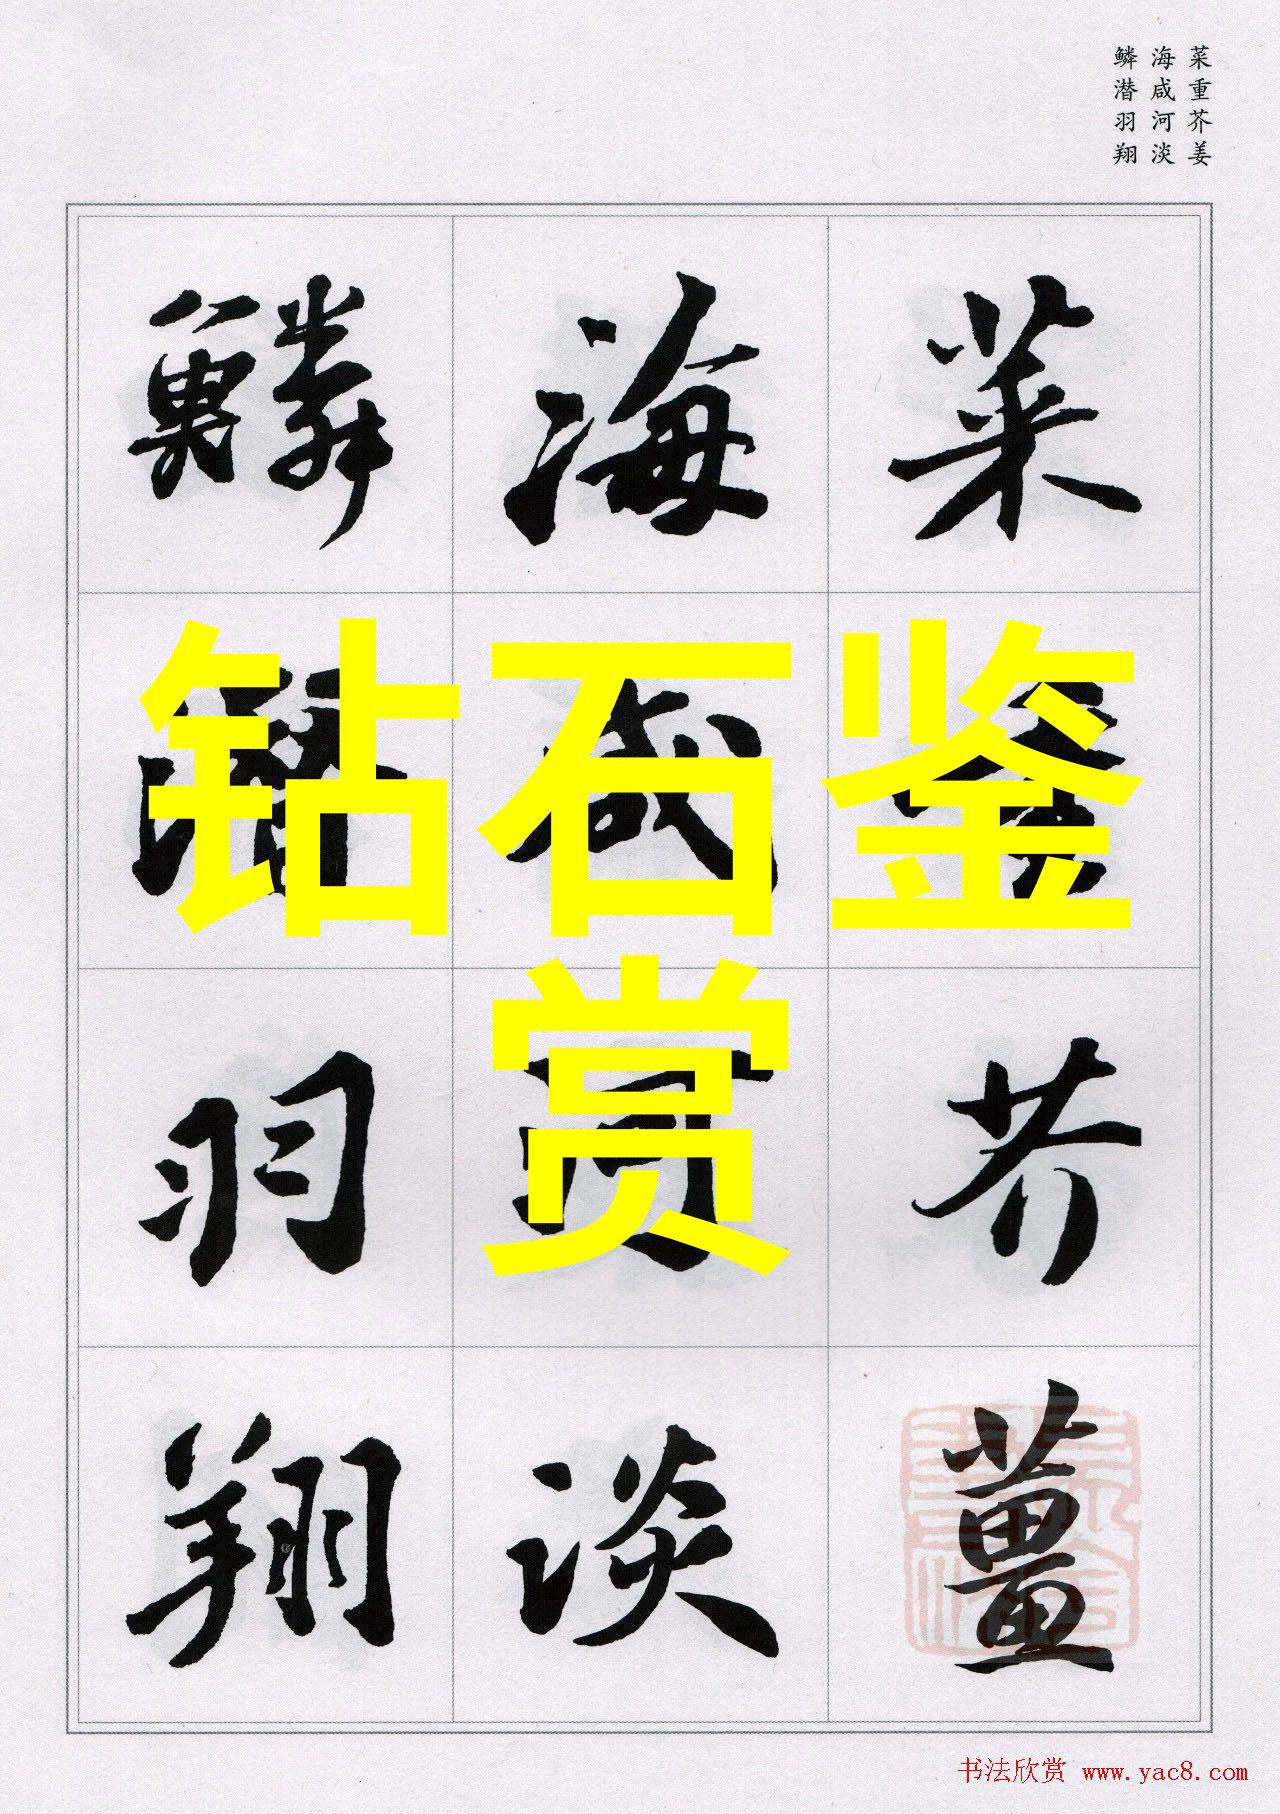 菜重芥姜
海咸河淡
鳞潜羽翔
菜 重 芥 薑
海 鹹 河 淡
鱗 潛 羽 翔
钻石鉴
赏
书法欣赏 www.yac8.com